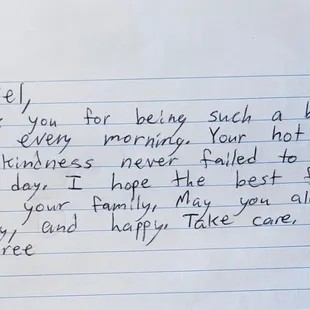 el,
you for being such a b
every morning. Your hot
kindness never failed to
day. I hope the best
your family, May you al
y, and happy. Take care,
ree